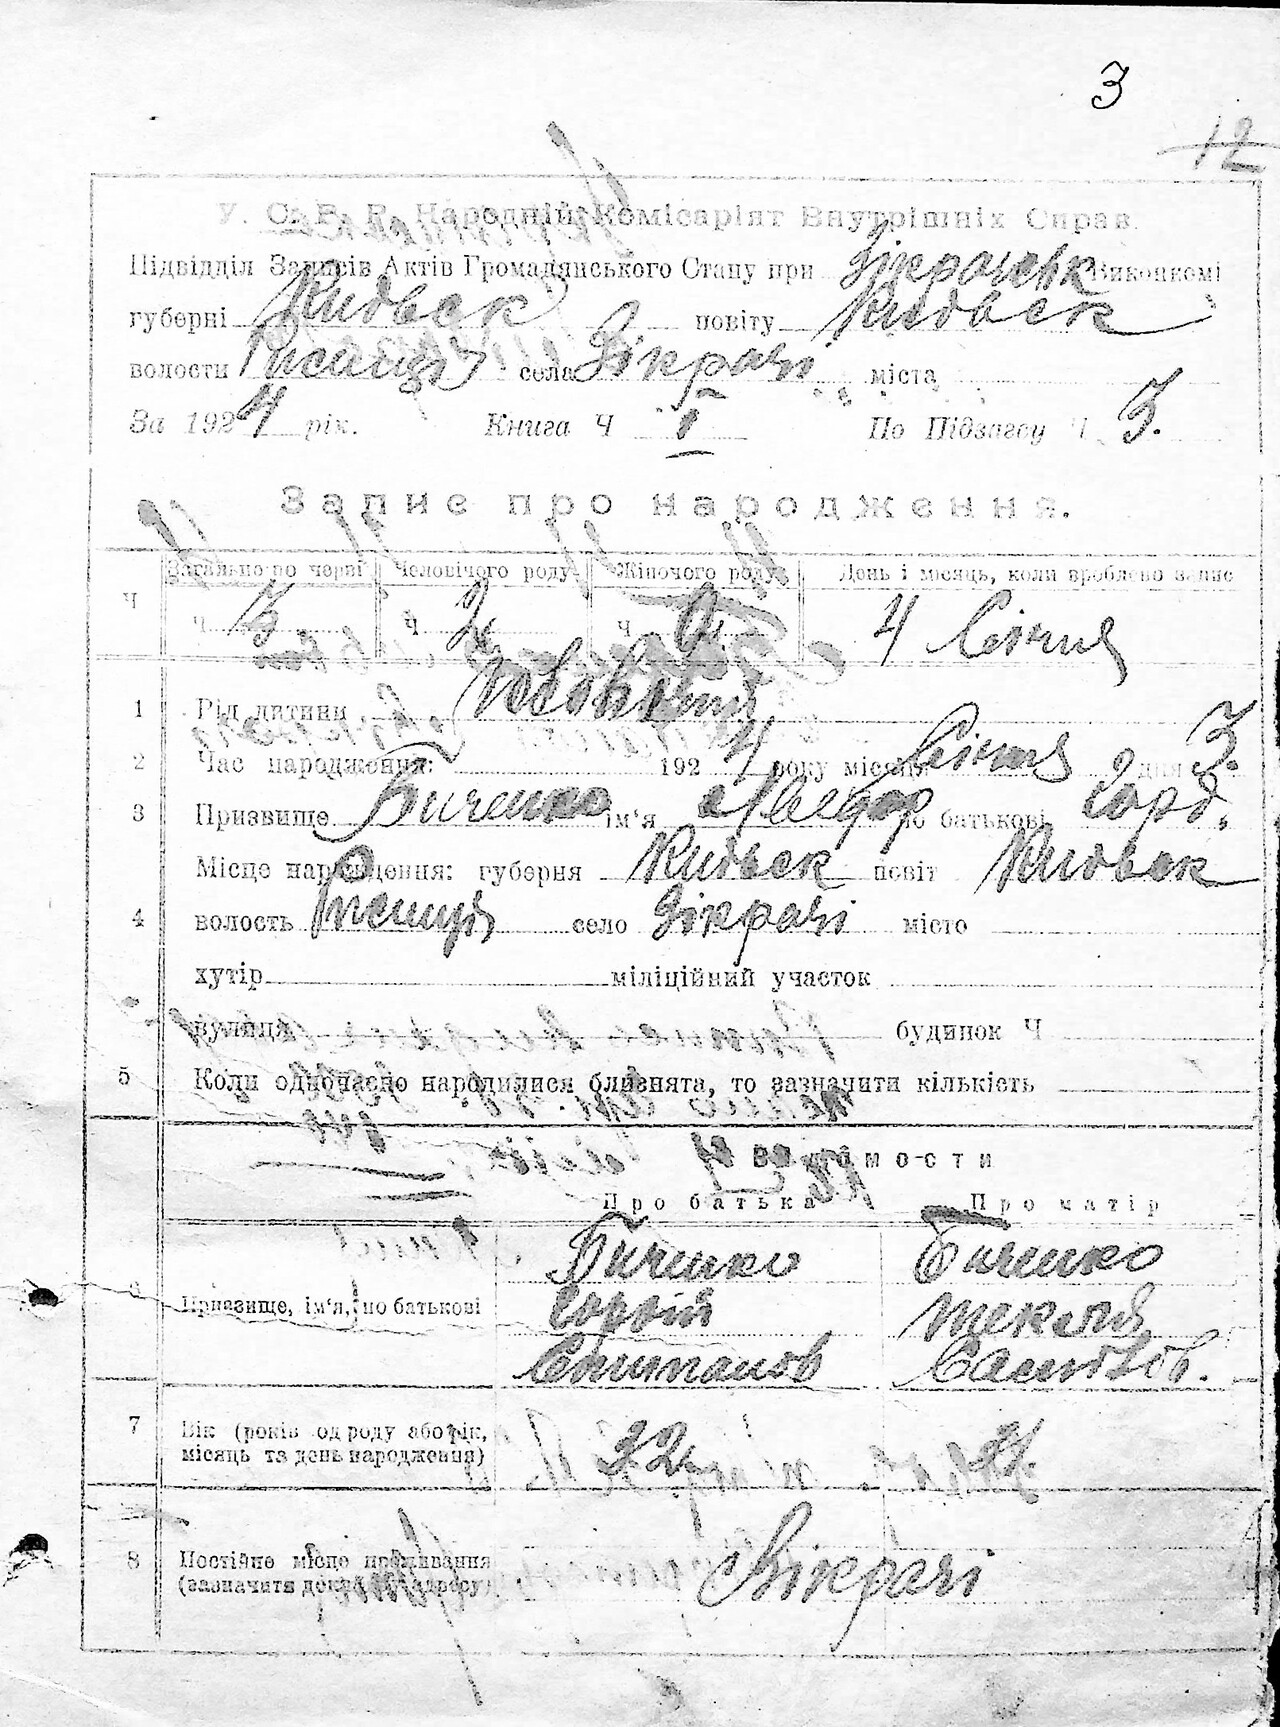 3
12
У. С. Р. Р. Народній Комісаріят Внутрішніх Справ.
Підвідділ Записів Актів Громадянського Стану при Зікрачовськ Виконкомі
губерні Київськ повіту Київськ
волости Ржищів села Зікрачі міста
За 1924 рік. Книга Ч I По Підзагсу Ч 3.
Запис про народження.
Загально по черві Человічого роду Жіночого роду День і мосяць, коли вроблено запис
Ч ч 3 ч 2 ч 4 Січня
1 Рід дитини Чоловічий
2 Час народження: 1924 року місяця Січня дня 3.
3 Призвище Биченко ім'я по батькові Горд.
Місце народження: губерня Київськ повіт Київськ
4 волость село Зікрачі місто
хутір міліційний участок
вулиця будинок Ч
5 Коли одночасно народилися близнята, то зазначити кількість
Відомости
Про батька Про матір
Биченко Биченко
6 Призвище, ім'я, по батькові Гордій Текля
Степанов
7 Вік (років од роду або рік, 32 31.
місяць та день народження)
8 Постійне місце проживання Зікрачі
(зазначить докладну адресу)